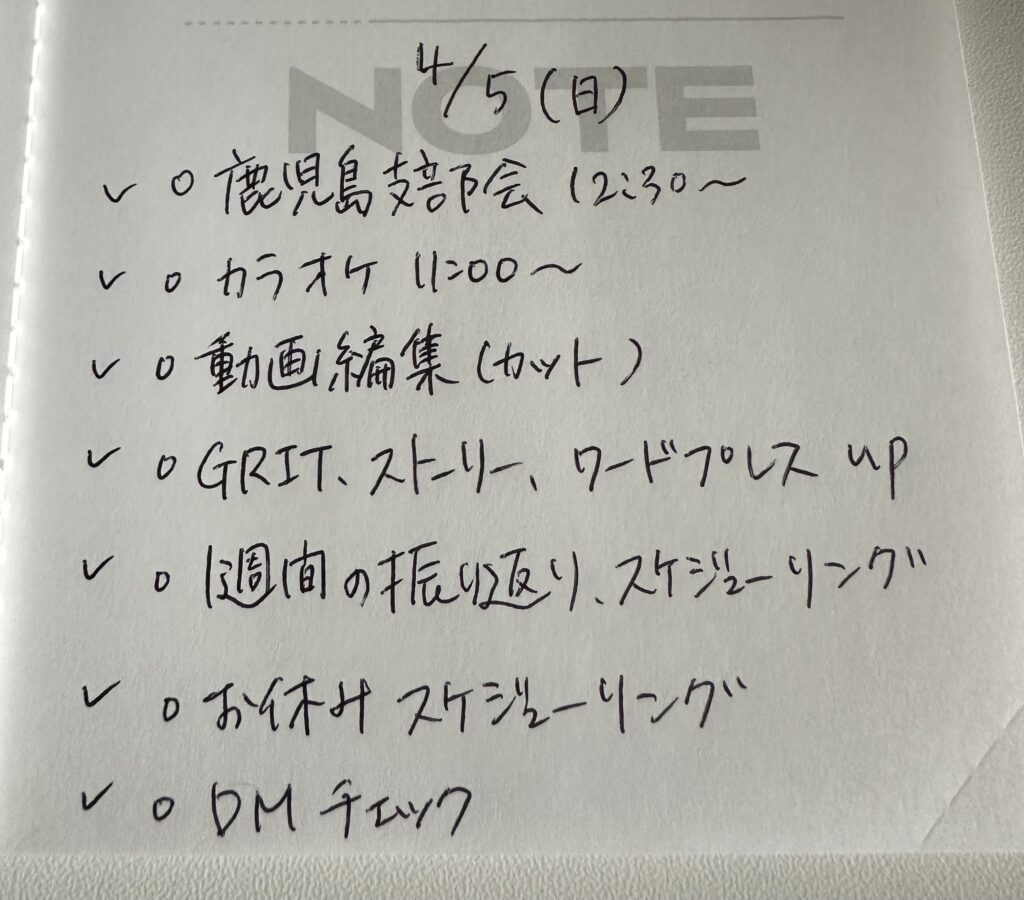 NOTE
4/5(日)
✓ ○ 鹿児島支部会 12:30〜
✓ ○ カラオケ 11:00〜
✓ ○ 動画編集(カット)
✓ ○ GRIT、ストーリー、ワードプレス up
✓ ○ 1週間の振り返り、スケジューリング
✓ ○ お休みスケジューリング
✓ ○ DMチェック